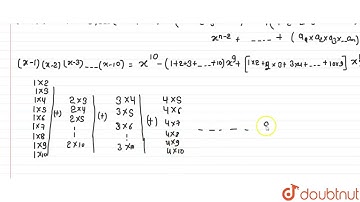 x^(n-2) + ..... + (a₁×a₂×a₃×...aₙ)
(x-1)(x-2)(x-3)----(x-10) = x^10 - (1+2+3+...+10)x^9 + [1×2+2×3+3×4+...+10×9] x
1×2
1×3
1×4 2×3 3×4 4×5
1×5 (+) 2×4 (+) 3×5 4×6
1×6 2×5 3×6 (+) 4×7
1×7 ¦ ¦ 4×8
1×8 ¦ ¦ 4×9
1×9 2×10 4×10
1×10
doubtnut